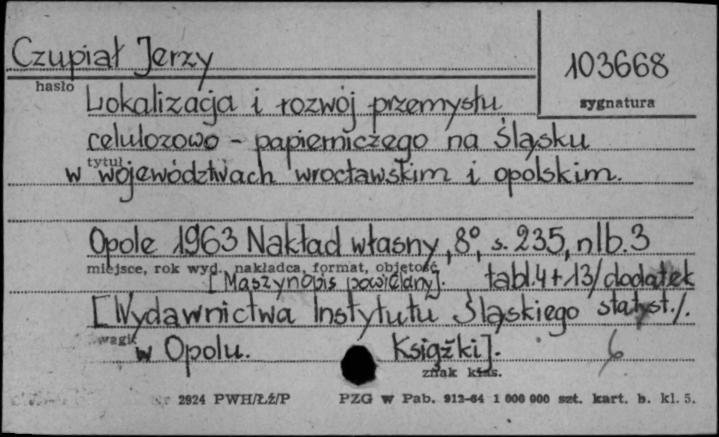 Czupiał Jerzy
103668
hasło
sygnatura
Lokalizacja i rozwój przemysłu
celulozowo - papierniczego na Śląsku
tytuł
w województwach wrocławskim i opolskim.
Opole 1963 Nakład własny, 8°, s. 235, nlb. 3
miejsce, rok wyd., nakładca, format, objętość
[Maszynopis powielany]. tabl. 4 + 13/dodatek
[Wydawnictwa Instytutu Śląskiego statyst./.
uwagi
w Opolu. Książki].
6
znak klas.
2924 PWH/Łź/P PZG w Pab. 912-64 1 000 000 szt. kart. b. kl. 5.